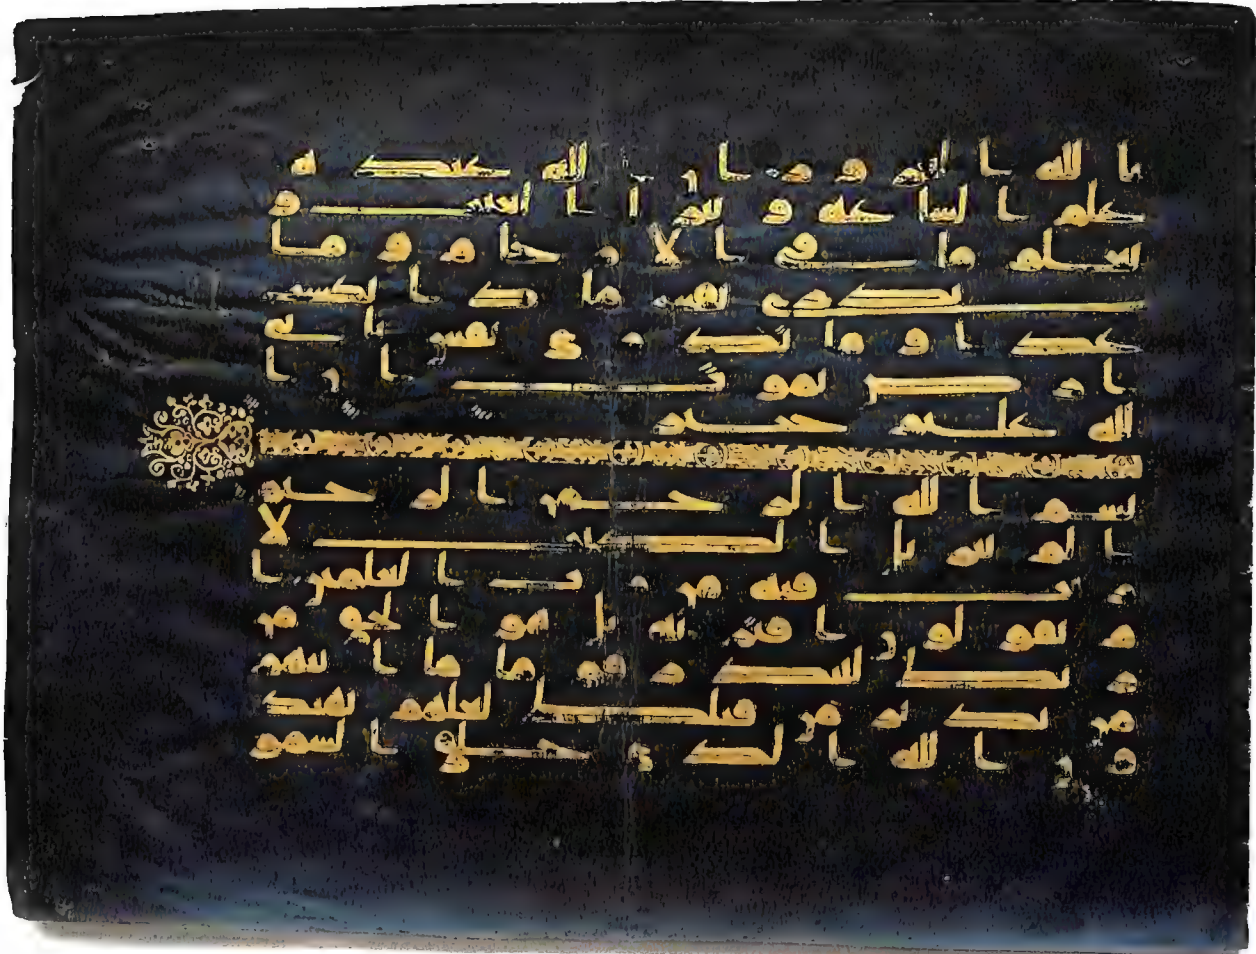 بالله الغرور ان الله عنده
علم الساعه وينزل الغيث و
يعلم ما في الارحام وما
تدري نفس ماذا تكسب
غدا وما تدري نفس باي
ارض تموت ان ا
لله عليم خبير
بسم الله الرحمن الرحيم
الم تنزيل الكتب لا
ريب فيه من رب العلمين ا
م يقولون افتريه بل هو الحق من
ربك لتنذر قوما ما اتيهم
من نذير من قبلك لعلهم يهتد
ون الله الذي خلق السمو